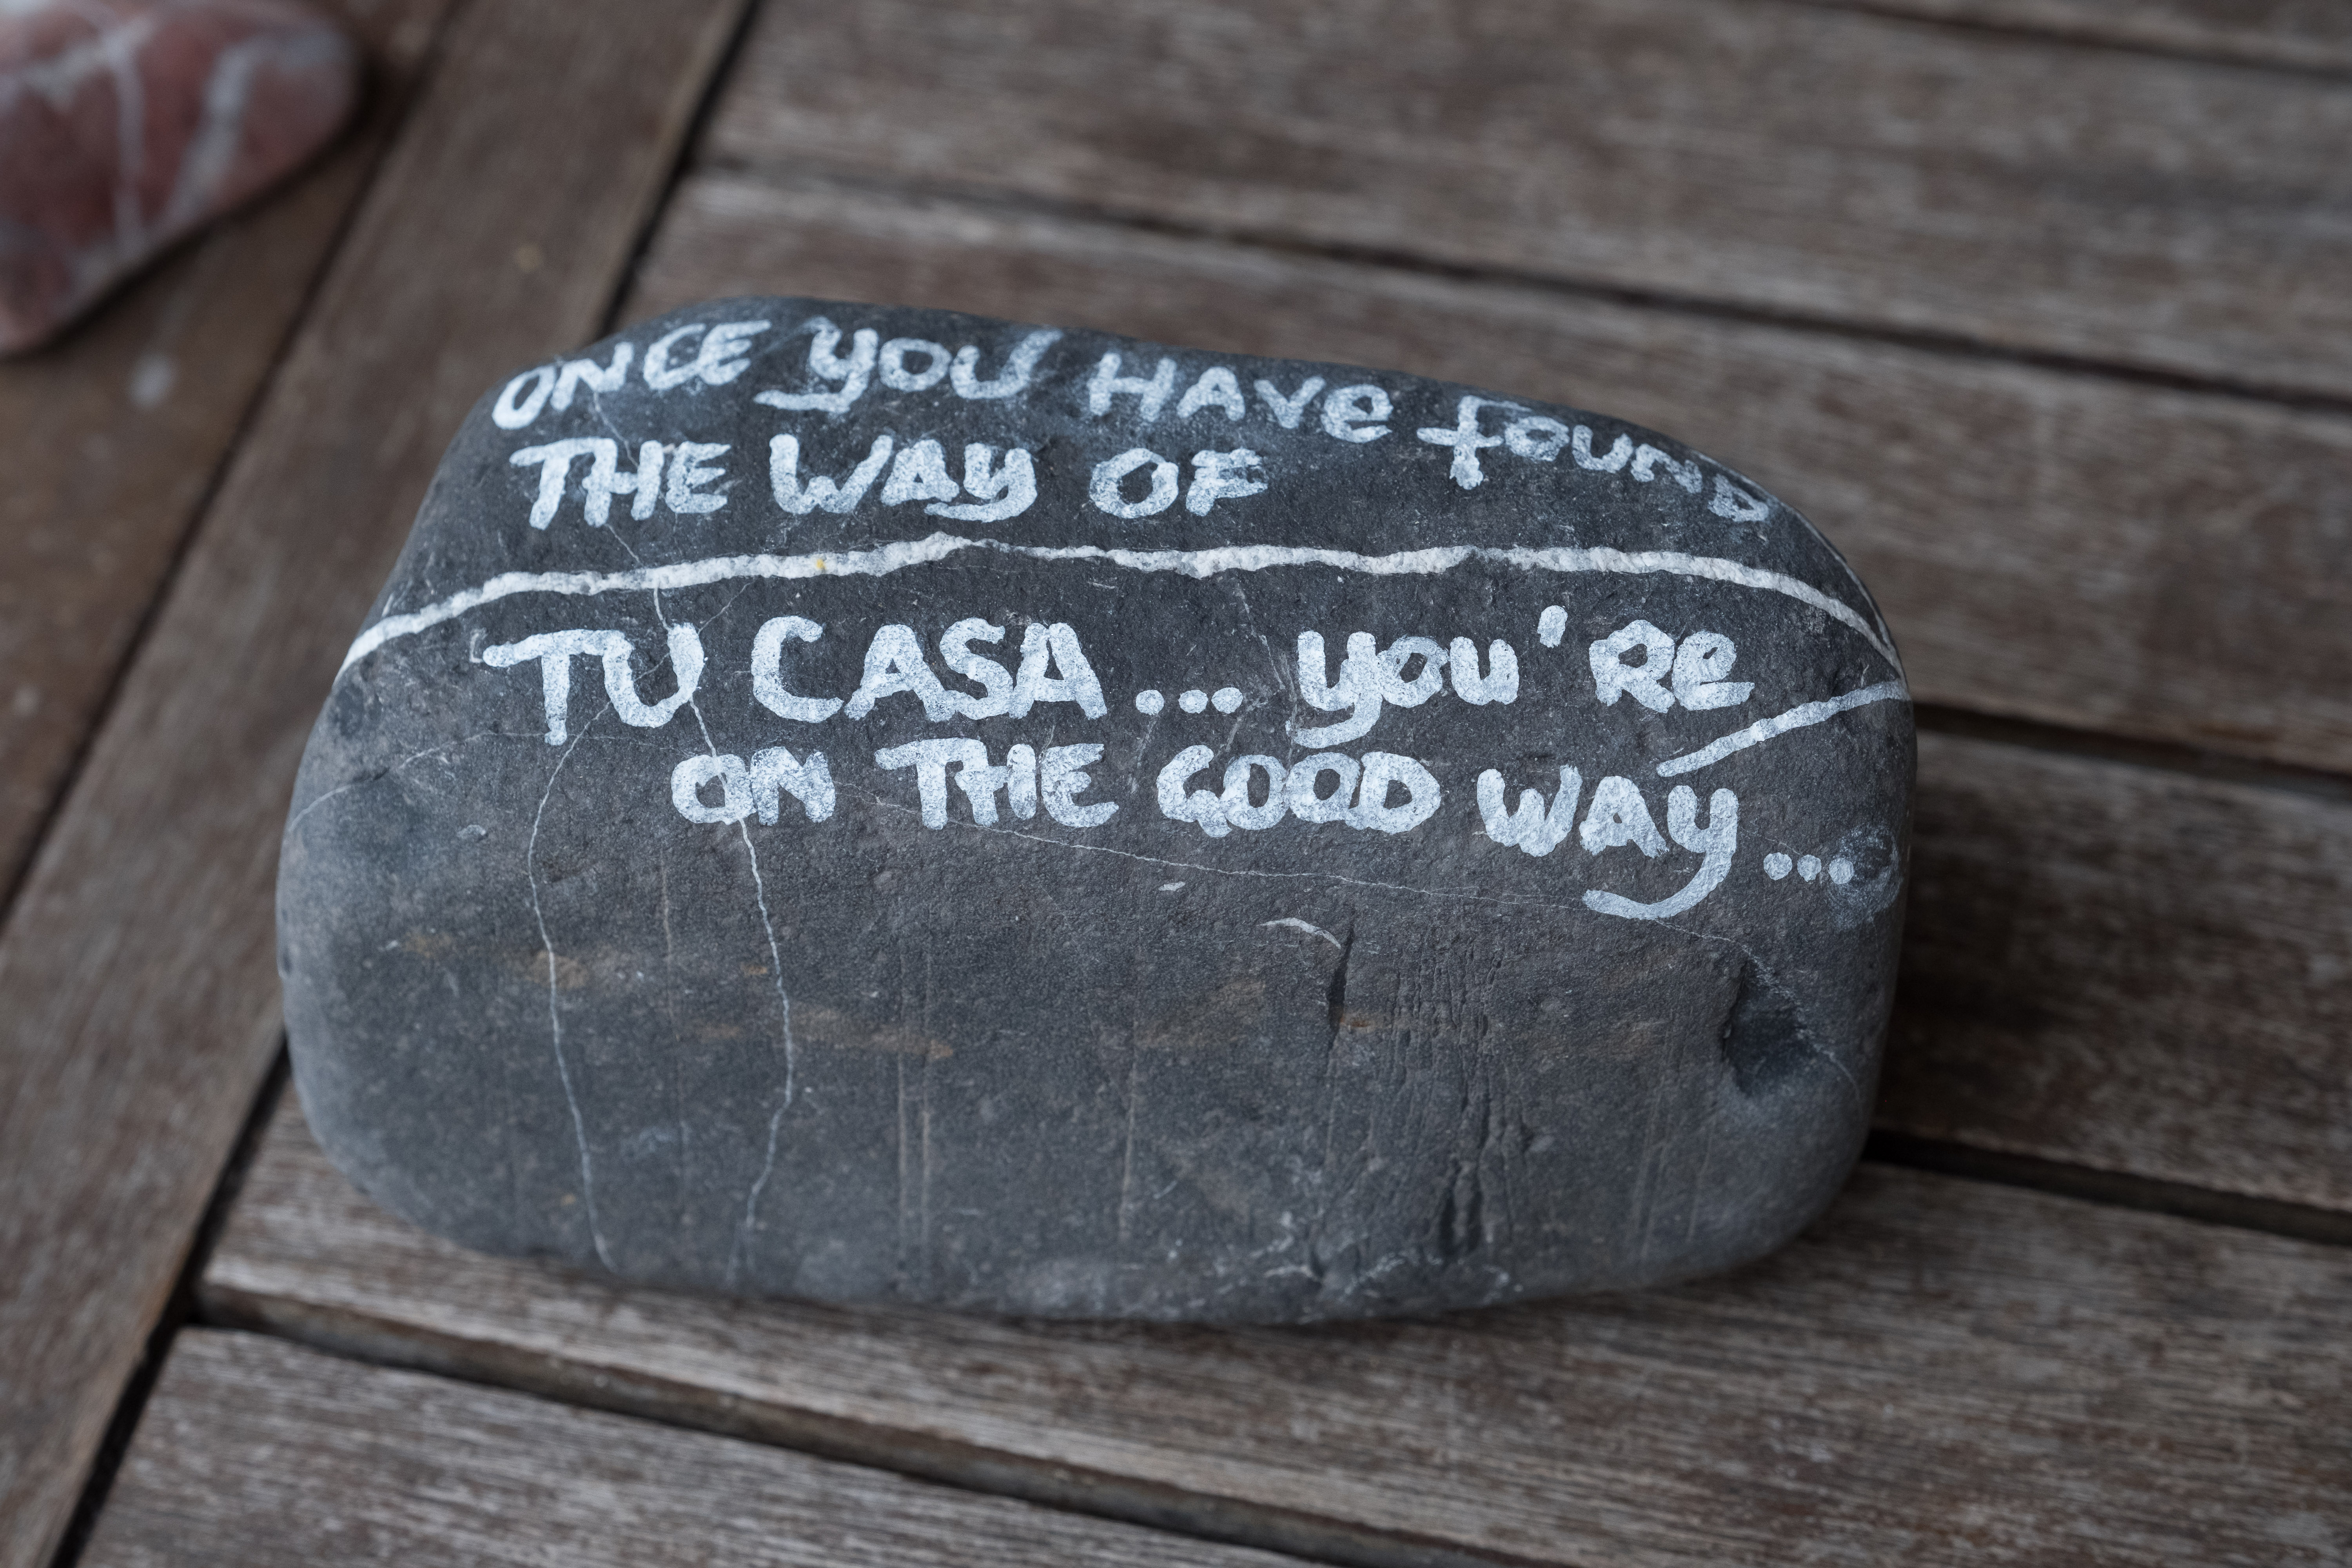 ONCE YOU HAVE FOUND
THE WAY OF
TU CASA... YOU'RE
ON THE GOOD WAY...